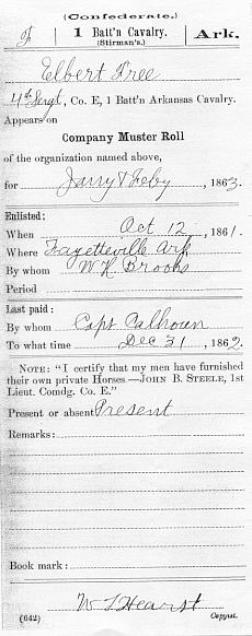 (Confederate.)
F 1 Batt'n Cavalry. Ark.
(Stirman's.)
Elbert Free
4th Sergt, Co. E, 1 Batt'n Arkansas Cavalry.
Appears on
Company Muster Roll
of the organization named above,
for Jany & Feby, 1863.
Enlisted:
When Oct 12, 1861.
Where Fayetteville Ark
By whom W. H. Brooks
Period
Last paid:
By whom Capt Calhoun
To what time Dec 31, 1862.
NOTE: "I certify that my men have furnished
their own private Horses.—JOHN B. STEELE, 1st
Lieut. Comdg. Co. E."
Present or absent Present
Remarks:
Book mark:
W L Hearst
(642) Copyist.